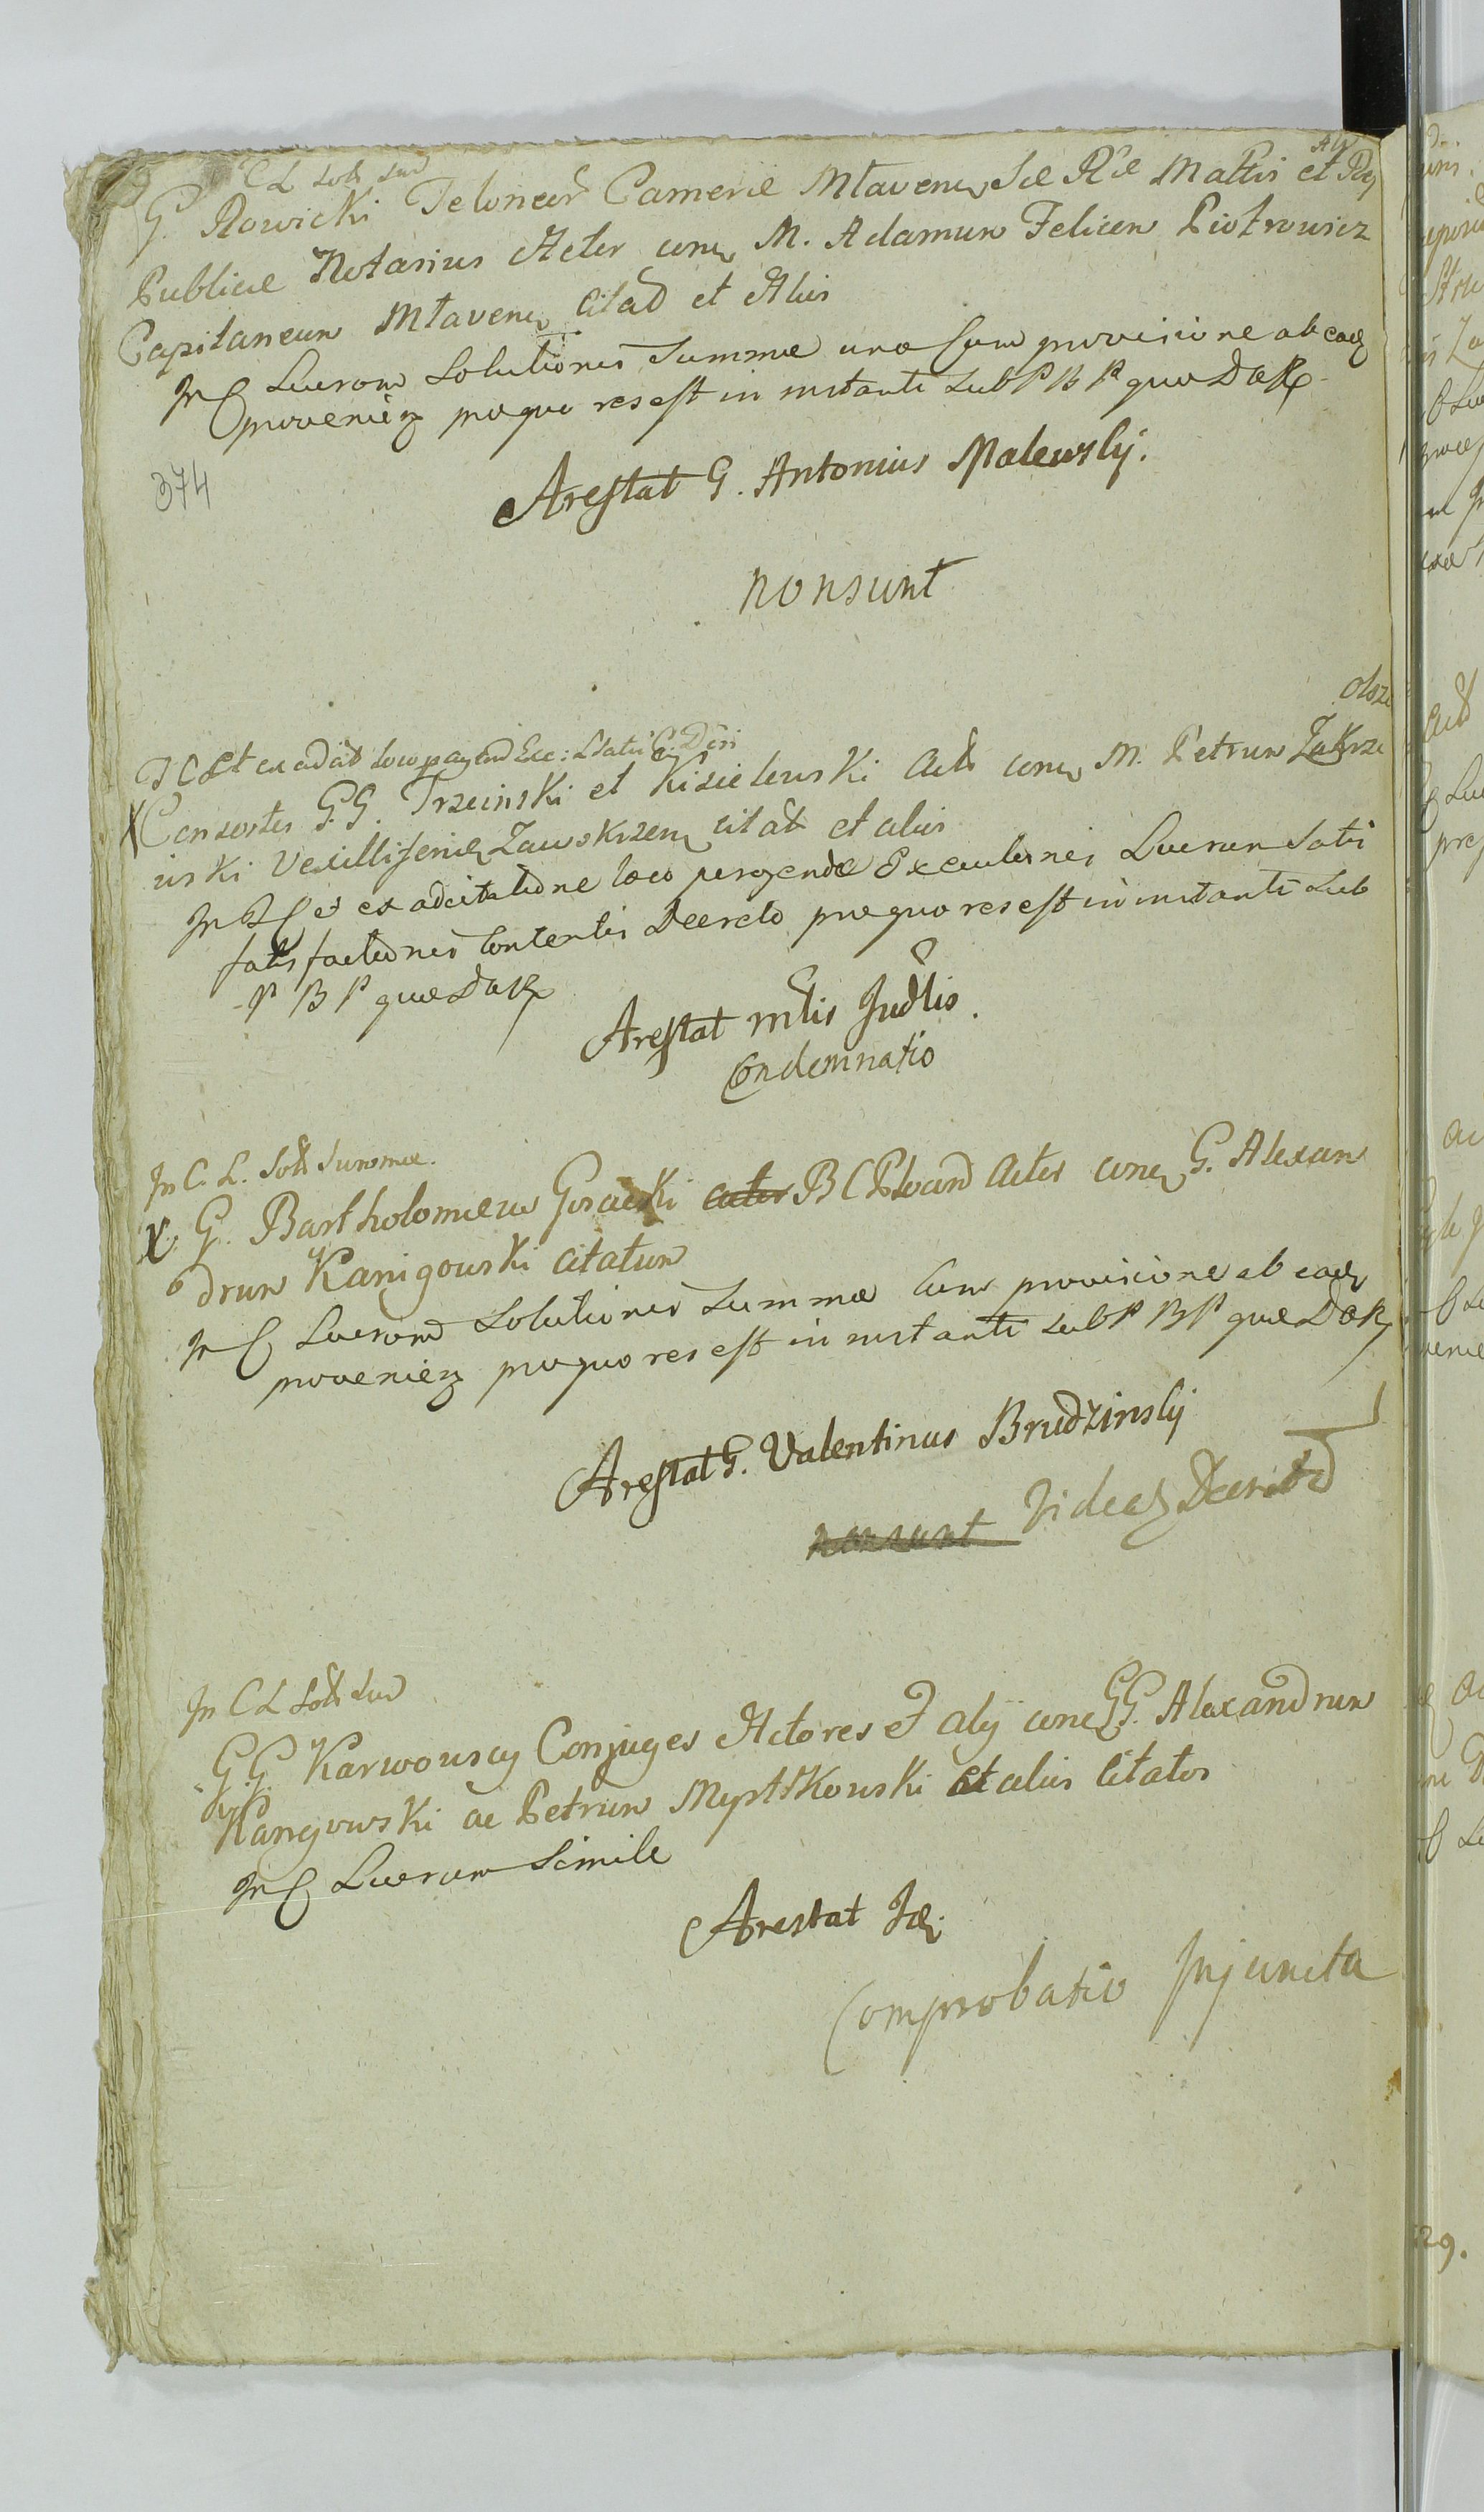 C L Soln Sum
G. Rowicki Teloneor Camerae Mlavens Sae Rae Mattis et Rx
Publicae Notarius Actor conq M. Adamum Felicem Piotrowicz
Capitaneum Mlavens Citad et Aliis
In C Lucrorum Solutionis Summae una cum provisione ab eadq
provenien proquo res est in instanti sub P B P quae D a R
Arestat G. Antonius Malewskÿ.
374
non sunt
Consortes G.G. Trzcinski et Kisielewski Acts conq M. Petrum Zakrze
wski Vexilliferum Zawskrzens citat et aliis
In C et ex adcitatione loco peragendae Executionis Lucrorum Satis
satisfactionis Contentis Decreto proquo res est in instanti sub
P B P quae D a R
Arestat mlis Judlis.
Condemnatio
In C. L. Soln Summae.
X G. Bartholomeus Goracki actor B C Actor conq G. Alexan
drum Kanigowski Citatum
In C Lucrorum Solutionis Summae Cum provisione ab eadq
provenien proquo res est in instanti sub P B P quae D a R
Arestat G. Valentinus Brudzinskÿ
non sunt Videas Decretu
In C L Soln Sum
G.G. Karwowscy Conjuges Actores et alÿ conq GG. Alexandrum
Kanigowski ac Petrum Mystkowski et aliis Citatos
In C Lucrorum Simile
Arestat Id.
Comprobatio Injuncta